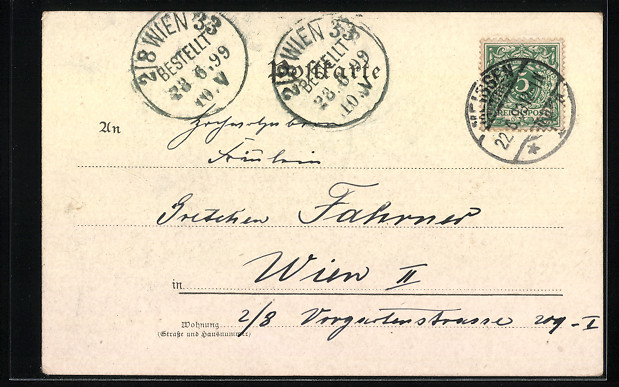 2/8 WIEN 33
BESTELLT
23.6.99
10.V
2/8 WIEN 33
BESTELLT
23.6.99
10.V
Postkarte
5
REICHSPOST
22.
An
Fräulein
Gretchen Fahrner
in Wien II
Wohnung 2/8 Vorgartenstrasse 209-I
(Straße und Hausnummer)